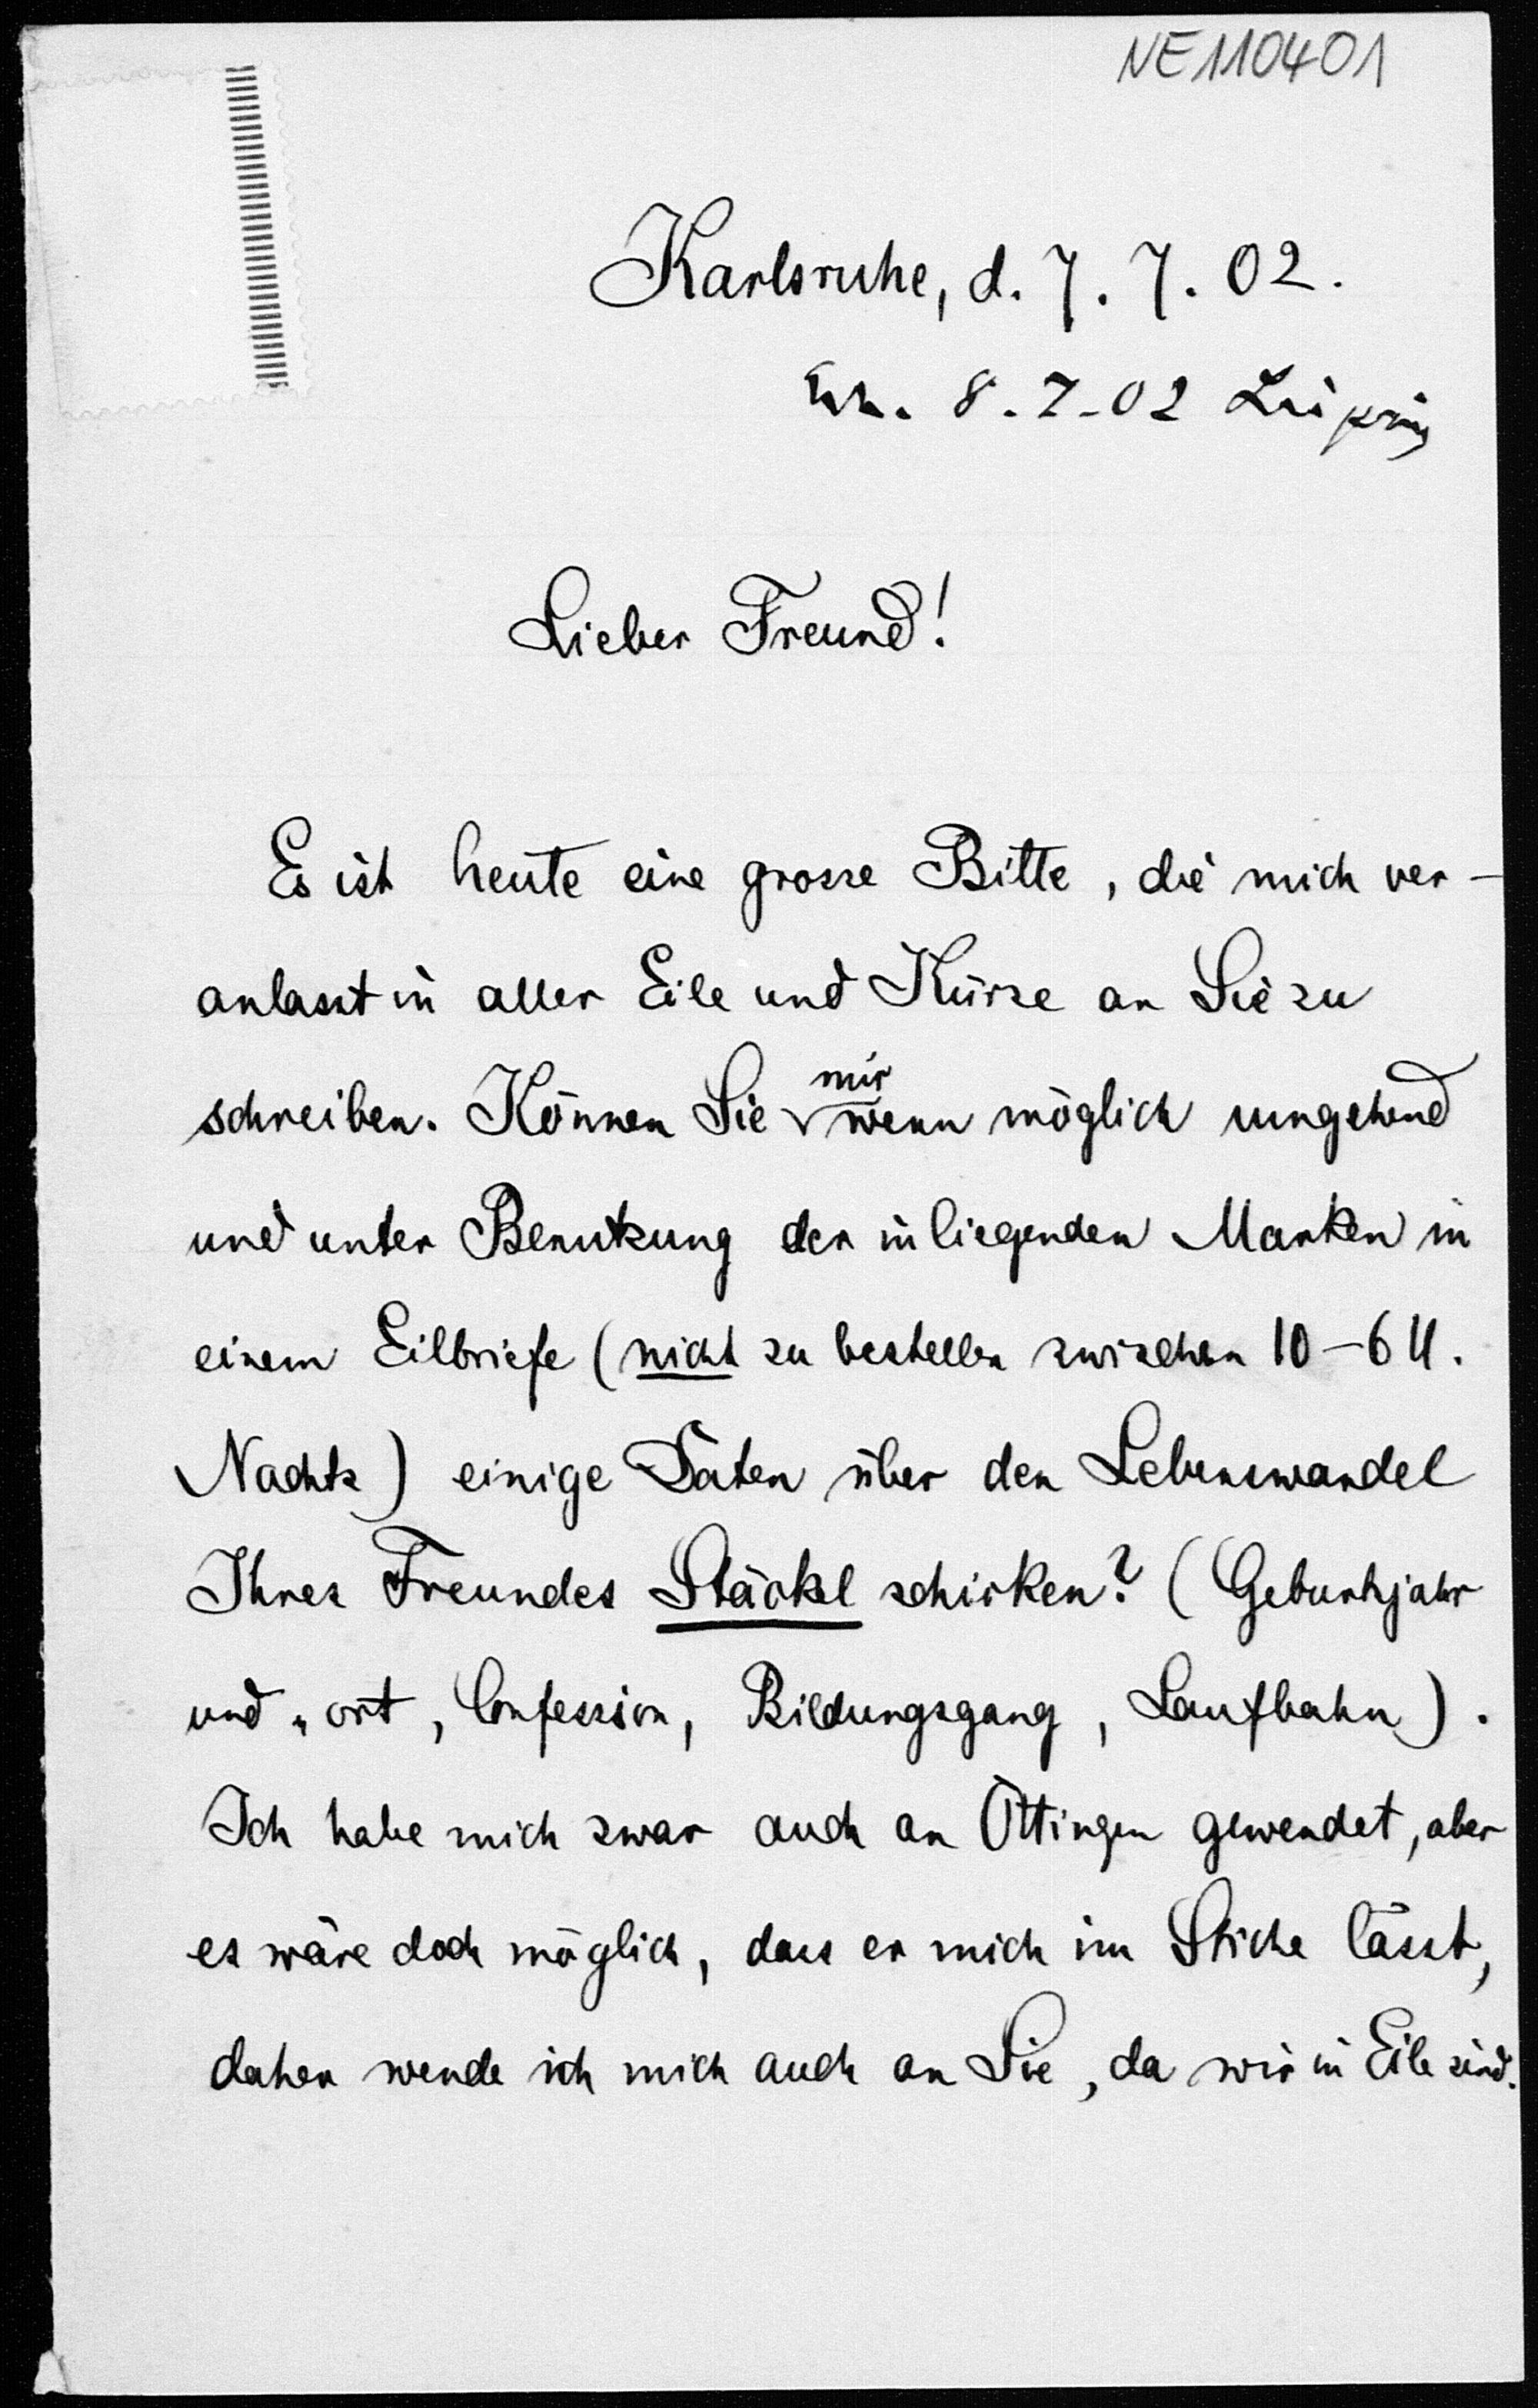 NE110401
Karlsruhe, d. 7. 7. 02.
8.7-02 Leipzig
Lieber Freund!
Es ist heute eine grosse Bitte, die mich ver-
anlasst in aller Eile und Kürze an Sie zu
schreiben. Können Sie mir wenn möglich umgehend
und unter Benutzung der inliegenden Marken in
einem Eilbriefe (nicht zu bestellen zwischen 10-6 U.
Nachts) einige Daten über den Lebenswandel
Ihres Freundes Stäckel schicken? (Geburtsjahr
und „ ort, Confession, Bildungsgang, Laufbahn).
Ich habe mich zwar auch an Öttingen gewendet, aber
es wäre doch möglich, dass er mich im Stiche lässt,
daher wende ich mich auch an Sie, da wir in Eile sind.